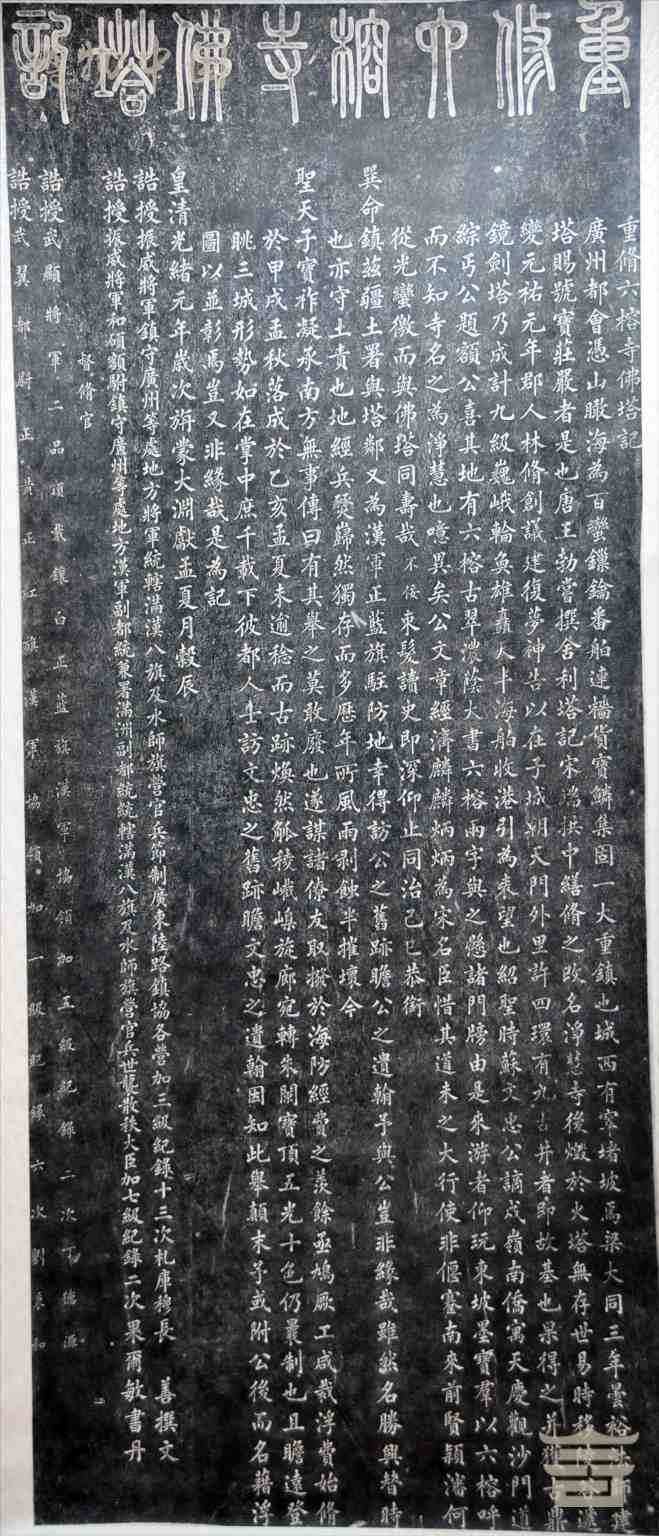 重修六榕寺佛塔記
重脩六榕寺佛塔記
廣州都會憑山瞰海為百蠻鏁鑰番舶連檣貨寶鱗集固一大重鎮也城西有窣堵坡焉梁大同三年曇裕法師建
塔賜號寶莊嚴者是也唐王勃嘗撰舍利塔記宋端拱中繕脩之改名淨慧寺後燬於火塔無存世易時移
變元祐元年郡人林脩創議建復夢神告以在子城朝天門外里許四環有九古井者即故基也果得之并獲古鼎
鏡劍塔乃成計九級巍峨輪奐雄矗天半海舶收港引為表望也紹聖時蘇文忠公謫戍嶺南僑寓天慶觀沙門道
綜丐公題額公喜其地有六榕古翠濃陰大書六榕兩字與之懸諸門牓由是來游者仰玩東坡墨寶羣以六榕呼
而不知寺名之為淨慧也噫異矣公文章經濟麟麟炳炳為宋名臣惜其道未之大行使非偃蹇南來前賢韻瀋何
從光蠻徼而與佛塔同壽哉不佞束髮讀史即深仰止同治己巳恭銜
巽命鎮茲疆土署與塔鄰又為漢軍正藍旗駐防地幸得訪公之舊跡瞻公之遺翰予與公豈非緣哉雖然名勝興替時
也亦守土責也地經兵燹巋然獨存而多歷年所風雨剥蝕半摧壞今
聖天子寶祚凝承南方無事傳曰有其舉之莫敢廢也遂謀諸僚友取撥於海防經費之羨餘亟鳩厥工咸裁浮費始脩
於甲戌孟秋落成於乙亥孟夏未逾稔而古跡煥然觚稜峨嵲旋廊宛轉朱闌寶頂五光十色仍曩制也且瞻遠登
眺三城形勢如在掌中庶千載下彼都人士訪文忠之舊跡瞻文忠之遺翰因知此舉顛末予或附公後而名藉浮
圖以並彰焉豈又非緣哉是為記
皇清光緒元年歲次旃蒙大淵獻孟夏月穀辰
誥授振威將軍鎮守廣州等處地方將軍統轄滿漢八旗及水師旗營官兵節制廣東陸路鎮協各營加三級紀錄十三次札庫穆長 善撰文
誥授振威將軍和碩額駙鎮守廣州等處地方漢軍副都統兼署滿洲副都統統轄滿漢八旗及水師旗營官兵世襲散秩大臣加七級紀錄二次果爾敏書丹
督脩官
誥授武顯將軍二品頂戴鑲白正藍旗漢軍協領加五級紀錄二次丁德源
誥授武翼都尉正黃正紅旗漢軍協領加一級紀錄六次劉秉和